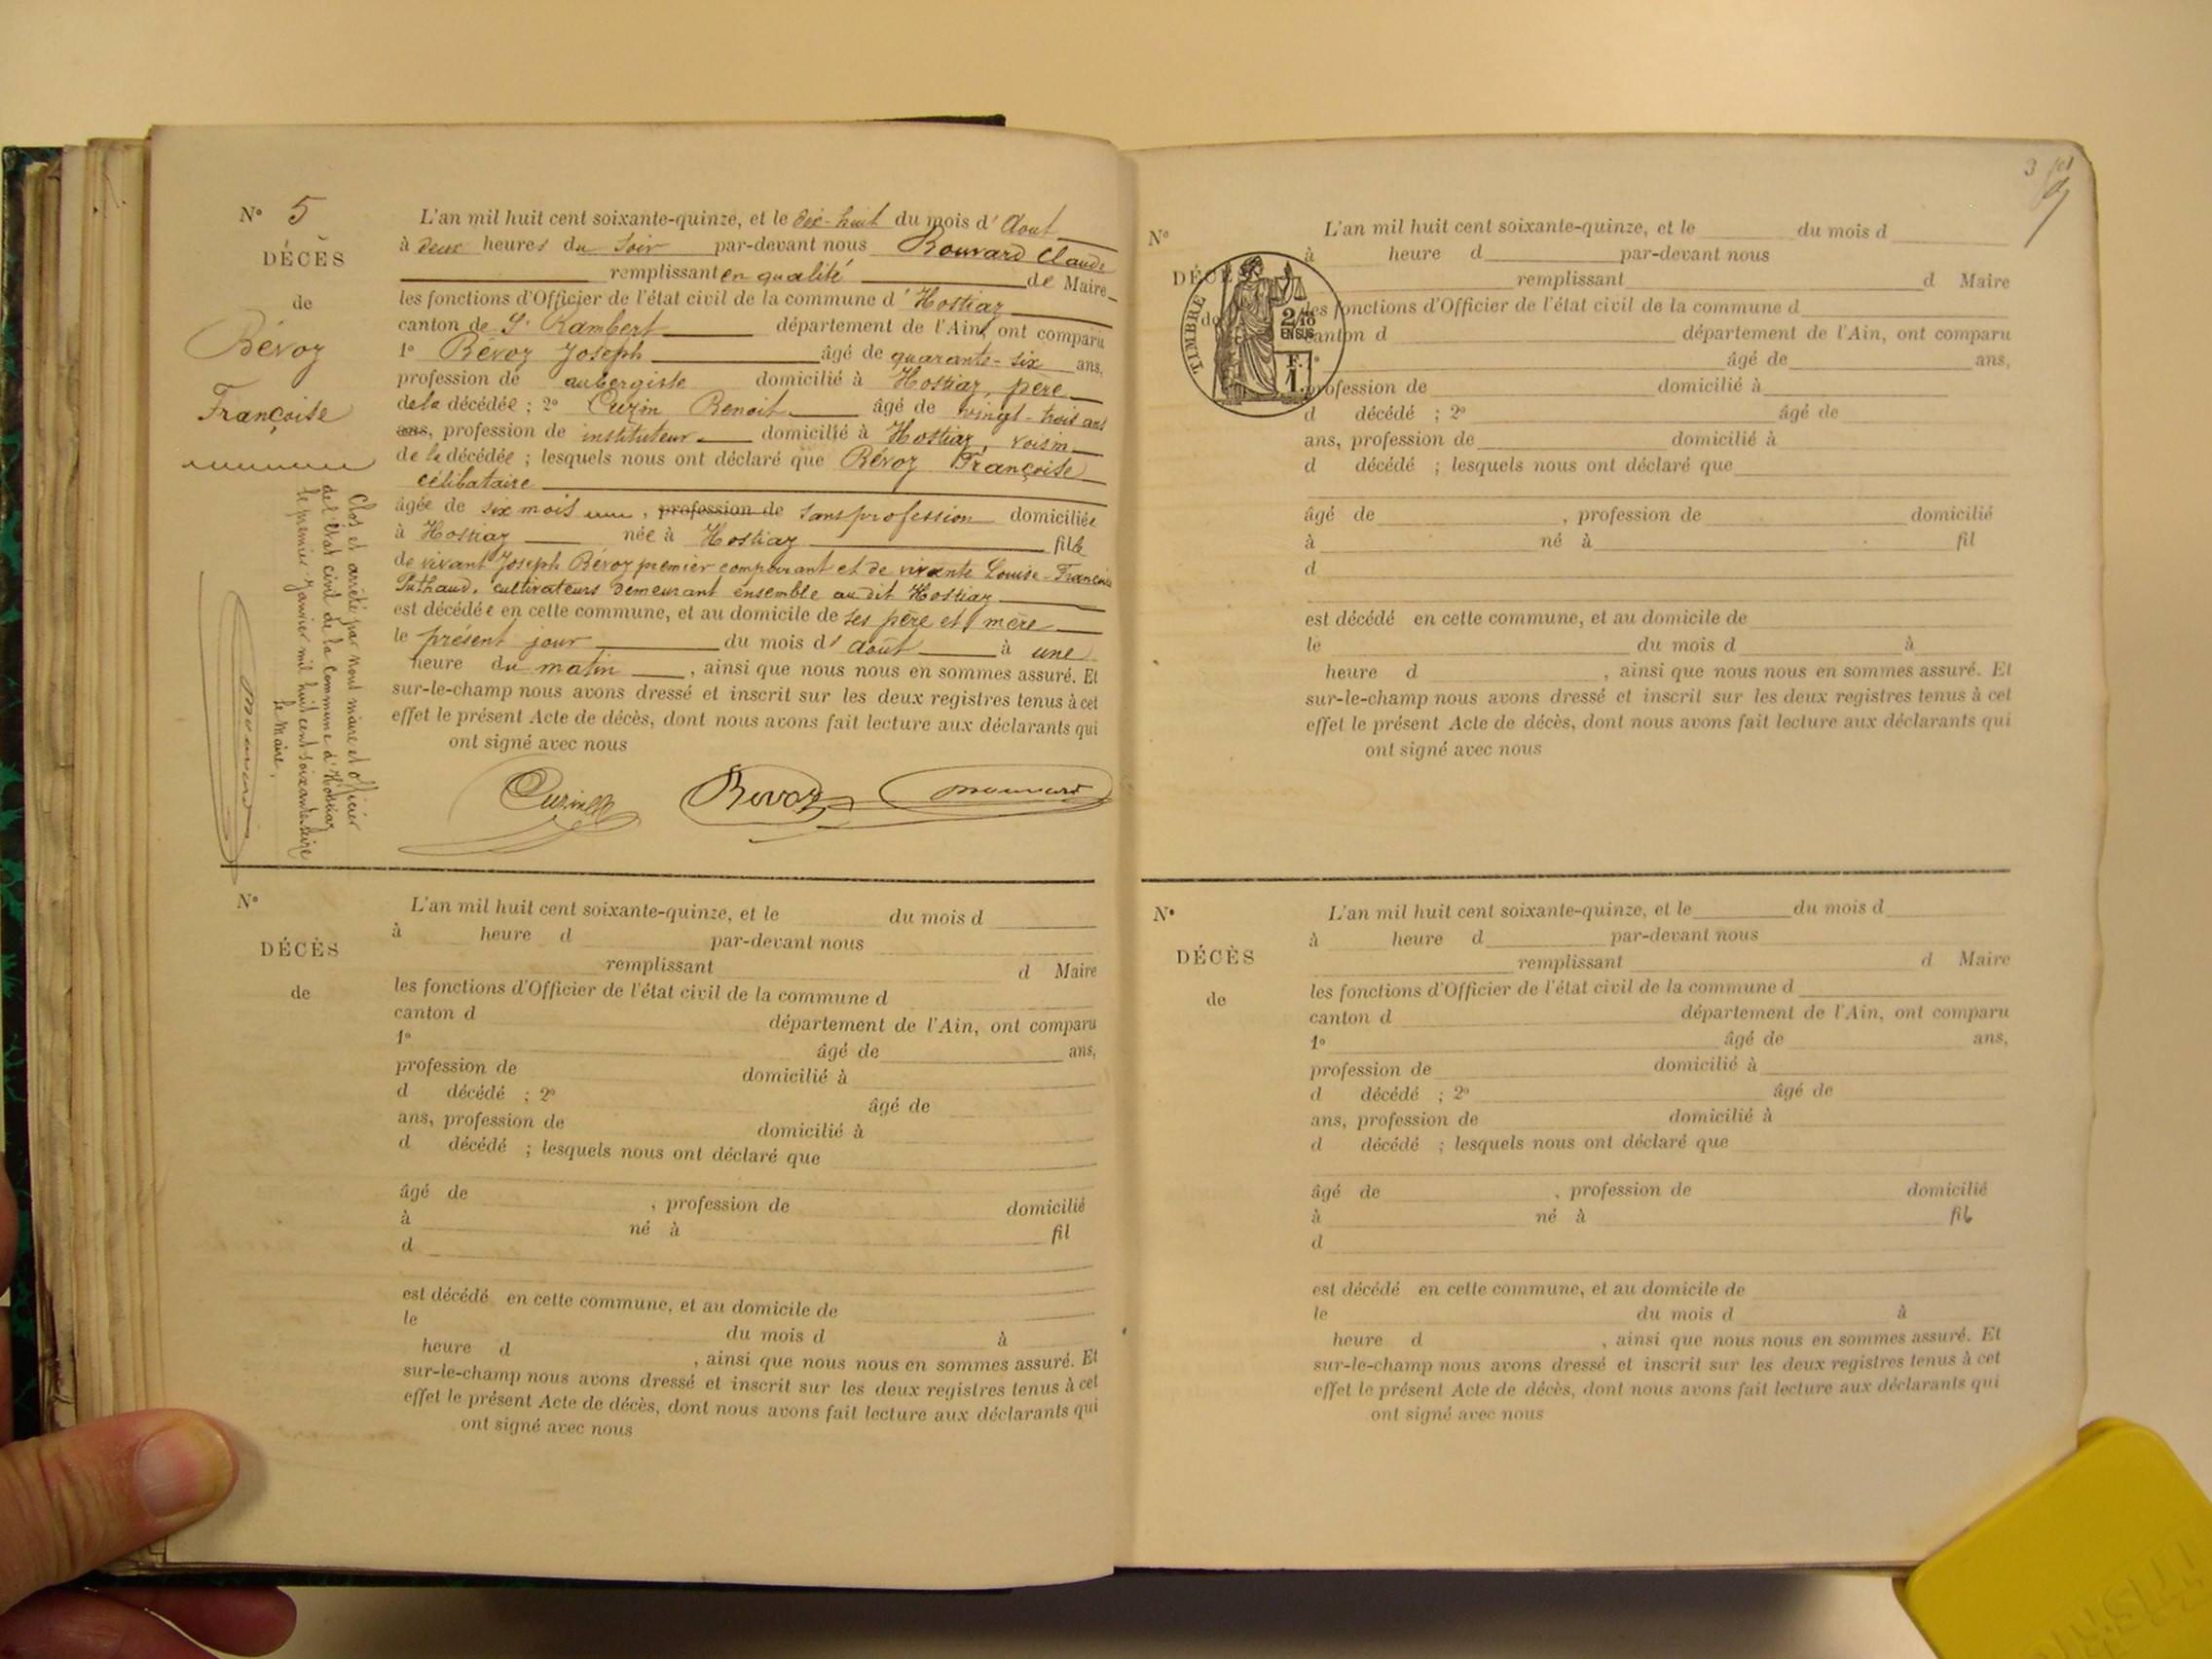 N° 5
DÉCÈS
de
Bévoz
Françoise
L'an mil huit cent soixante-quinze, et le dix-huit du mois d' Aout
à deux heures du soir par-devant nous Bouvard Claude
remplissant en qualité de Maire
les fonctions d'Officier de l'état civil de la commune d' Hostiaz
canton de St Rambert département de l'Ain, ont comparu
1° Bévoz Joseph âgé de quarante-six ans,
profession de aubergiste domicilié à Hostiaz, père
de la décédée ; 2° Cuzin Benoit âgé de vingt-trois ans
ans, profession de instituteur domicilié à Hostiaz, voisin
de la décédée ; lesquels nous ont déclaré que Bévoz Françoise
célibataire
âgée de six mois , profession de sans profession domiciliée
à Hostiaz née à Hostiaz fille
de vivant Joseph Bévoz premier comparant et de vivante Louise-Françoise
Juthaud, cultivateurs demeurant ensemble au dit Hostiaz
est décédée en cette commune, et au domicile de ses père et mère
le présent jour du mois d' août à une
heure du matin , ainsi que nous nous en sommes assuré. Et
sur-le-champ nous avons dressé et inscrit sur les deux registres tenus à cet
effet le présent Acte de décès, dont nous avons fait lecture aux déclarants qui
ont signé avec nous
Cuzin B Bevoz Bouvard
Clos et arrêté par nous maire et officier
de l'état civil de la commune d'Hostiaz
le premier janvier mil huit cent soixante seize
Le Maire,
Bouvard
N°
DÉCÈS
de
L'an mil huit cent soixante-quinze, et le du mois d
à heure d par-devant nous
remplissant d Maire
les fonctions d'Officier de l'état civil de la commune d
canton d département de l'Ain, ont comparu
1° âgé de ans,
profession de domicilié à
d décédé ; 2° âgé de
ans, profession de domicilié à
d décédé ; lesquels nous ont déclaré que
âgé de , profession de domicilié
à né à fil
d
est décédé en cette commune, et au domicile de
le du mois d à
heure d , ainsi que nous nous en sommes assuré. Et
sur-le-champ nous avons dressé et inscrit sur les deux registres tenus à cet
effet le présent Acte de décès, dont nous avons fait lecture aux déclarants qui
ont signé avec nous
3
N°
DÉCÈS
de
TIMBRE
2/10
EN SUS
F.
1.
L'an mil huit cent soixante-quinze, et le du mois d
à heure d par-devant nous
remplissant d Maire
les fonctions d'Officier de l'état civil de la commune d
canton d département de l'Ain, ont comparu
1° âgé de ans,
profession de domicilié à
d décédé ; 2° âgé de
ans, profession de domicilié à
d décédé ; lesquels nous ont déclaré que
âgé de , profession de domicilié
à né à fil
d
est décédé en cette commune, et au domicile de
le du mois d à
heure d , ainsi que nous nous en sommes assuré. Et
sur-le-champ nous avons dressé et inscrit sur les deux registres tenus à cet
effet le présent Acte de décès, dont nous avons fait lecture aux déclarants qui
ont signé avec nous
N°
DÉCÈS
de
L'an mil huit cent soixante-quinze, et le du mois d
à heure d par-devant nous
remplissant d Maire
les fonctions d'Officier de l'état civil de la commune d
canton d département de l'Ain, ont comparu
1° âgé de ans,
profession de domicilié à
d décédé ; 2° âgé de
ans, profession de domicilié à
d décédé ; lesquels nous ont déclaré que
âgé de , profession de domicilié
à né à fil
d
est décédé en cette commune, et au domicile de
le du mois d à
heure d , ainsi que nous nous en sommes assuré. Et
sur-le-champ nous avons dressé et inscrit sur les deux registres tenus à cet
effet le présent Acte de décès, dont nous avons fait lecture aux déclarants qui
ont signé avec nous